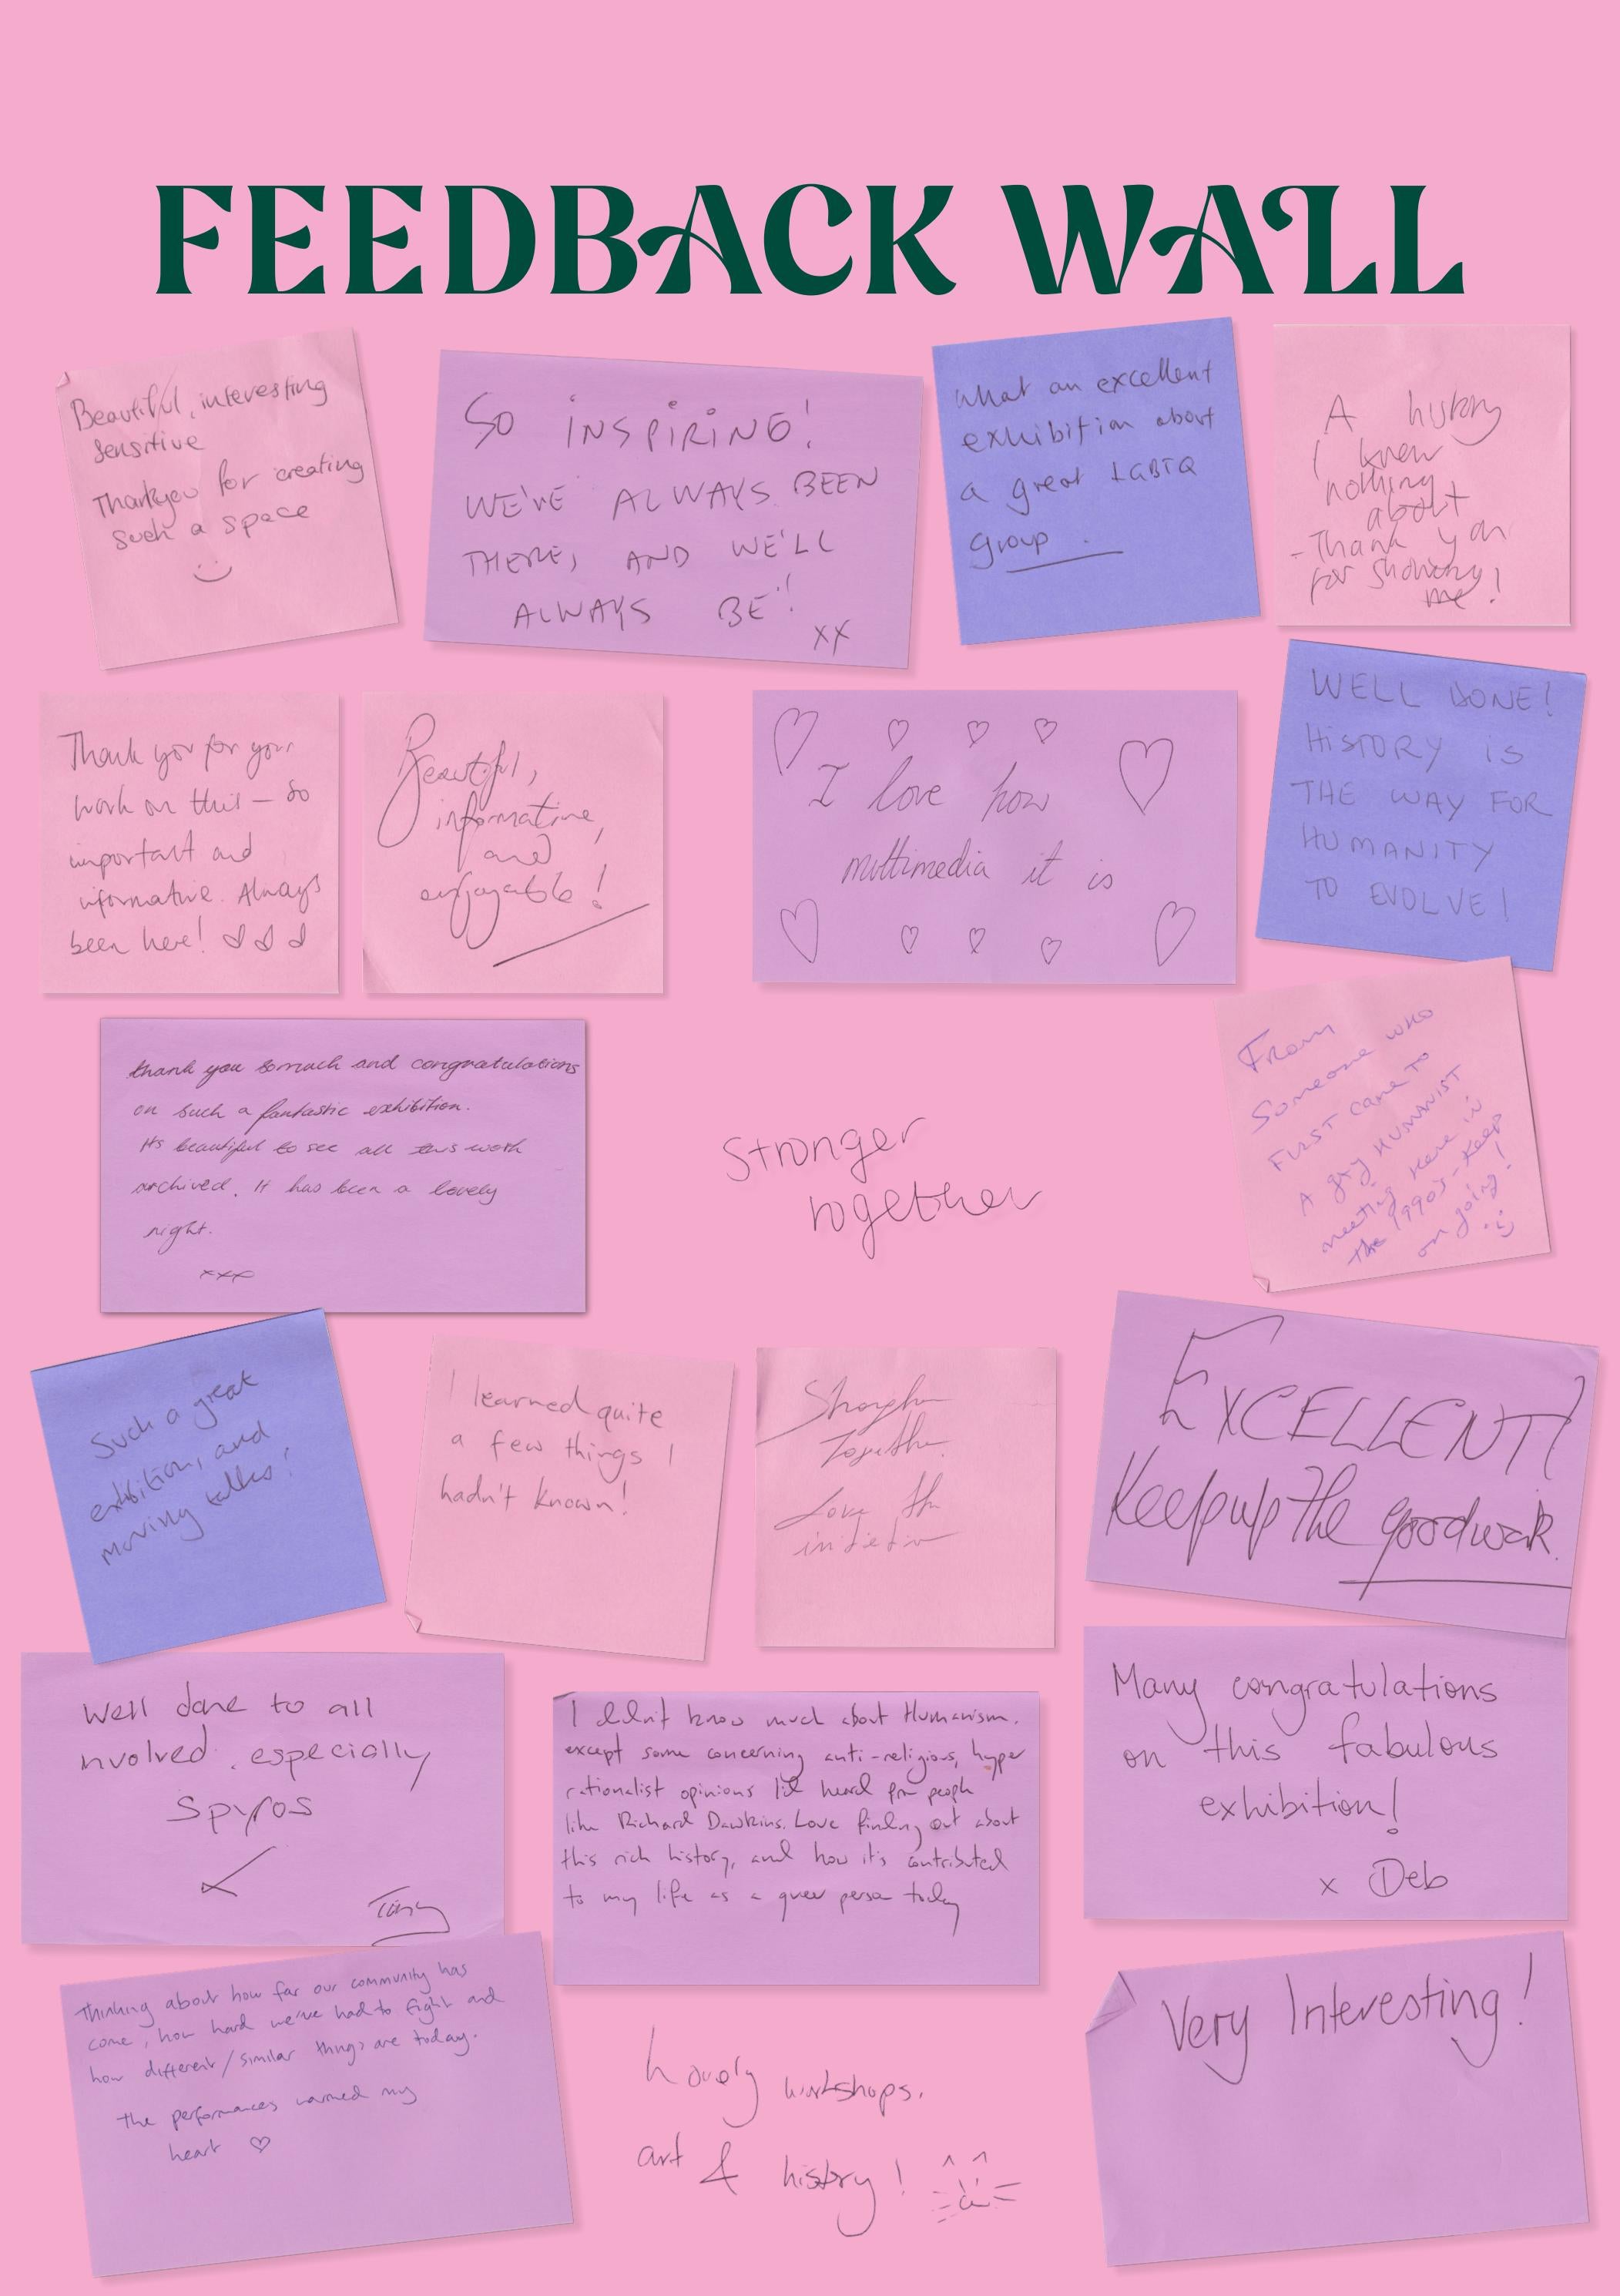 FEEDBACK WALL
Beautiful, interesting
sensitive
Thankyou for creating
such a space
SO INSPIRING!
WE'VE ALWAYS BEEN
THERE, AND WE'LL
ALWAYS BE!
xx
What an excellent
exhibition about
a great LGBTQ
group.
A history
I knew
nothing
about
- Thank you
for showing
me!
Thank you for your
work on this – so
important and
informative. Always
been here!
Beautiful,
informative,
and
enjoyable!
I love how
multimedia it is
WELL DONE!
HISTORY IS
THE WAY FOR
HUMANITY
TO EVOLVE!
thank you so much and congratulations
on such a fantastic exhibition.
Its beautiful to see all this work
archived. It has been a lovely
night.
xxx
Stronger
together
From
Someone who
FIRST CAME TO
A gay HUMANIST
meeting here in
the 1990s - keep
on going!
Such a great
exhibition, and
moving talks!
I learned quite
a few things I
hadn't known!
Together
Love the
EXCELLENT!
Keep up the good work.
Well done to all
nvolved, especially
Spyros
I didn't know much about Humanism,
except some concerning anti-religious, hyper
rationalist opinions I'd heard from people
like Richard Dawkins. Love finding out about
this rich history, and how it's contributed
to my life as a queer person today
Many congratulations
on this fabulous
exhibition!
x Deb
Thinking about how far our community has
come, how hard we've had to fight and
how different/similar things are today.
The performances warmed my
heart
Lovely workshops.
art & history!
Very Interesting!